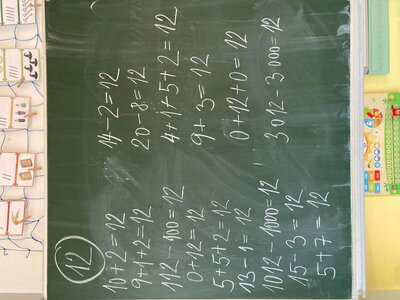 12
10 + 2 = 12
9 + 1 + 2 = 12
112 - 100 = 12
0 + 12 = 12
5 + 5 + 2 = 12
13 - 1 = 12
1012 - 1000 = 12
15 - 3 = 12
5 + 7 = 12
14 - 2 = 12
20 - 8 = 12
4 + 1 + 5 + 2 = 12
9 + 3 = 12
0 + 12 + 0 = 12
3 012 - 3 000 = 12